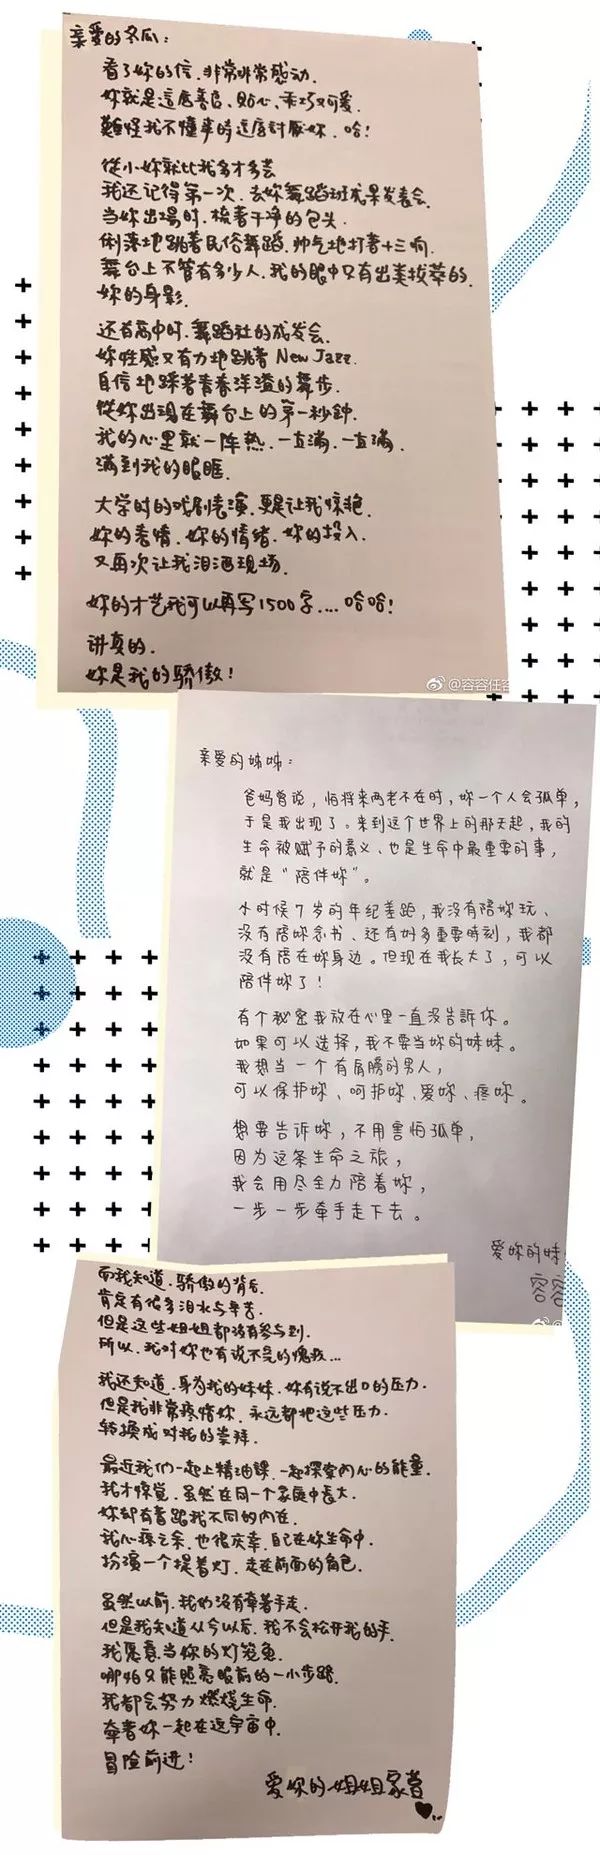 亲爱的冬瓜:
看了妳的信.非常非常感动.
妳就是這麼善良、貼心、乖巧又可爱.
難怪我不懂事時這麼討厭妳.哈!
從小妳就比我多才多芸
我还记得第一次.去妳舞蹈班成果发表会.
当妳出場时.梳著干净的包头.
俐落地跳著民俗舞蹈.帅气地打著十三响.
舞台上不管有多少人.我的眼中只有出类拔萃的.
妳的身影.
还有高中时.舞蹈社的成发会.
妳性感又有力地跳著 New Jazz.
自信地踩著青春洋溢的舞步.
從妳出现在舞台上的第一秒钟.
我的心里就一阵热.一直满.一直满.
满到我的眼眶.
大学时的戏剧表演.更是让我惊艳.
妳的表情.妳的情绪.妳的投入.
又再次让我泪洒现场.
妳的才艺我可以再写1500字....哈哈!
讲真的.
妳是我的骄傲!
@容容任容
亲爱的姊姊:
爸妈曾说,怕将来两老不在时,妳一个人会孤单,
于是我出现了。来到这个世界上的那天起,我的
生命被赋予的意义、也是生命中最重要的事,
就是"陪伴妳"。
小时候7岁的年纪差距,我没有陪妳玩、
没有陪妳念书、还有好多重要時刻,我都
没有陪在妳身边。但现在我长大了,可以
陪伴妳了!
有个秘密我放在心里一直没告訴你。
如果可以选择,我不要当妳的妹妹。
我想当一个有肩膀的男人,
可以保护妳、呵护妳、爱妳、疼妳。
想要告诉妳,不用害怕孤单,
因为这条生命之旅,
我会用尽全力陪着妳,
一步一步牵手走下去。
爱妳的妹
容容
而我知道.骄傲的背后.
肯定有很多泪水与辛苦.
但是这些姐姐都没有参与到.
所以.我对妳也有说不完的愧疚...
我还知道.身为我的妹妹.妳有说不出口的压力.
但是我非常疼惜妳.永远都把这些压力.
转换成对我的崇拜.
最近我们一起上精油課.一起探索內心的能量.
我才惊觉.虽然在同一个家庭中長大.
妳却有著跟我不同的内在.
我心疼之余.也很庆幸.自己在妳生命中.
扮演一个提着灯.走在前面的角色.
虽然以前.我们没有牵著手走.
但是我知道从今以后.我不会松开我的手.
我愿意当你的灯笼鱼.
哪怕只能照亮眼前的一小步路.
我都会努力燃烧生命.
牵著妳一起在这宇宙中.
冒险前进!
爱妳的姐姐家萱